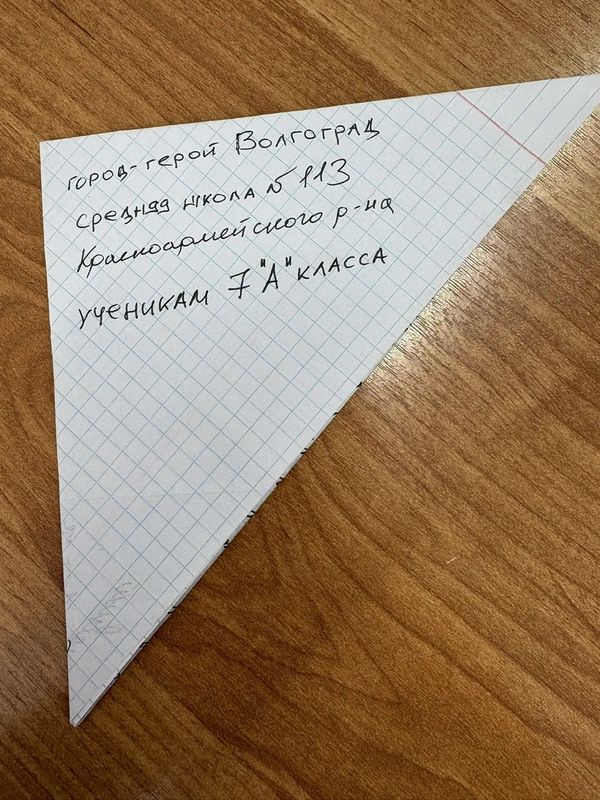 город-герой Волгоград
средняя школа № 113
Красноармейского р-на
ученикам 7 "А" класса